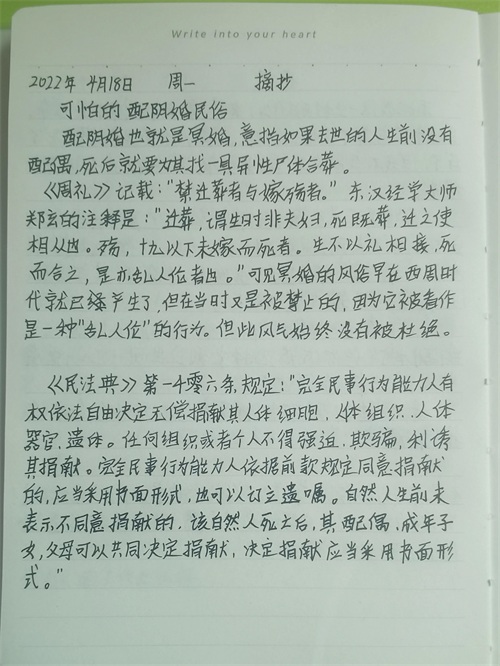 Write into your heart
2022年 4月18日 周一 摘抄
可怕的配阴婚民俗
配阴婚也就是冥婚,意指如果去世的人生前没有
配偶,死后就要为其找一具异性尸体合葬。
《周礼》记载:"禁迁葬者与嫁殇者。"东汉经学大师
郑玄的注释是:"迁葬,谓生时非夫妇,死既葬,迁之使
相从也。殇,十九以下未嫁而死者。生不以礼相接,死
而合之,是亦乱人伦者也。"可见冥婚的风俗早在西周时
代就已经产生了,但在当时又是被禁止的,因为它被看作
是一种"乱人伦"的行为。但此风气始终没有被杜绝。
《民法典》第一千零六条规定:"完全民事行为能力人有
权依法自由决定无偿捐献其人体细胞、人体组织、人体
器官、遗体。任何组织或者个人不得强迫、欺骗、利诱
其捐献。完全民事行为能力人依据前款规定同意捐献
的,应当采用书面形式,也可以订立遗嘱。自然人生前未
表示不同意捐献的,该自然人死亡后,其配偶、成年子
女、父母可以共同决定捐献,决定捐献应当采用书面形
式。"